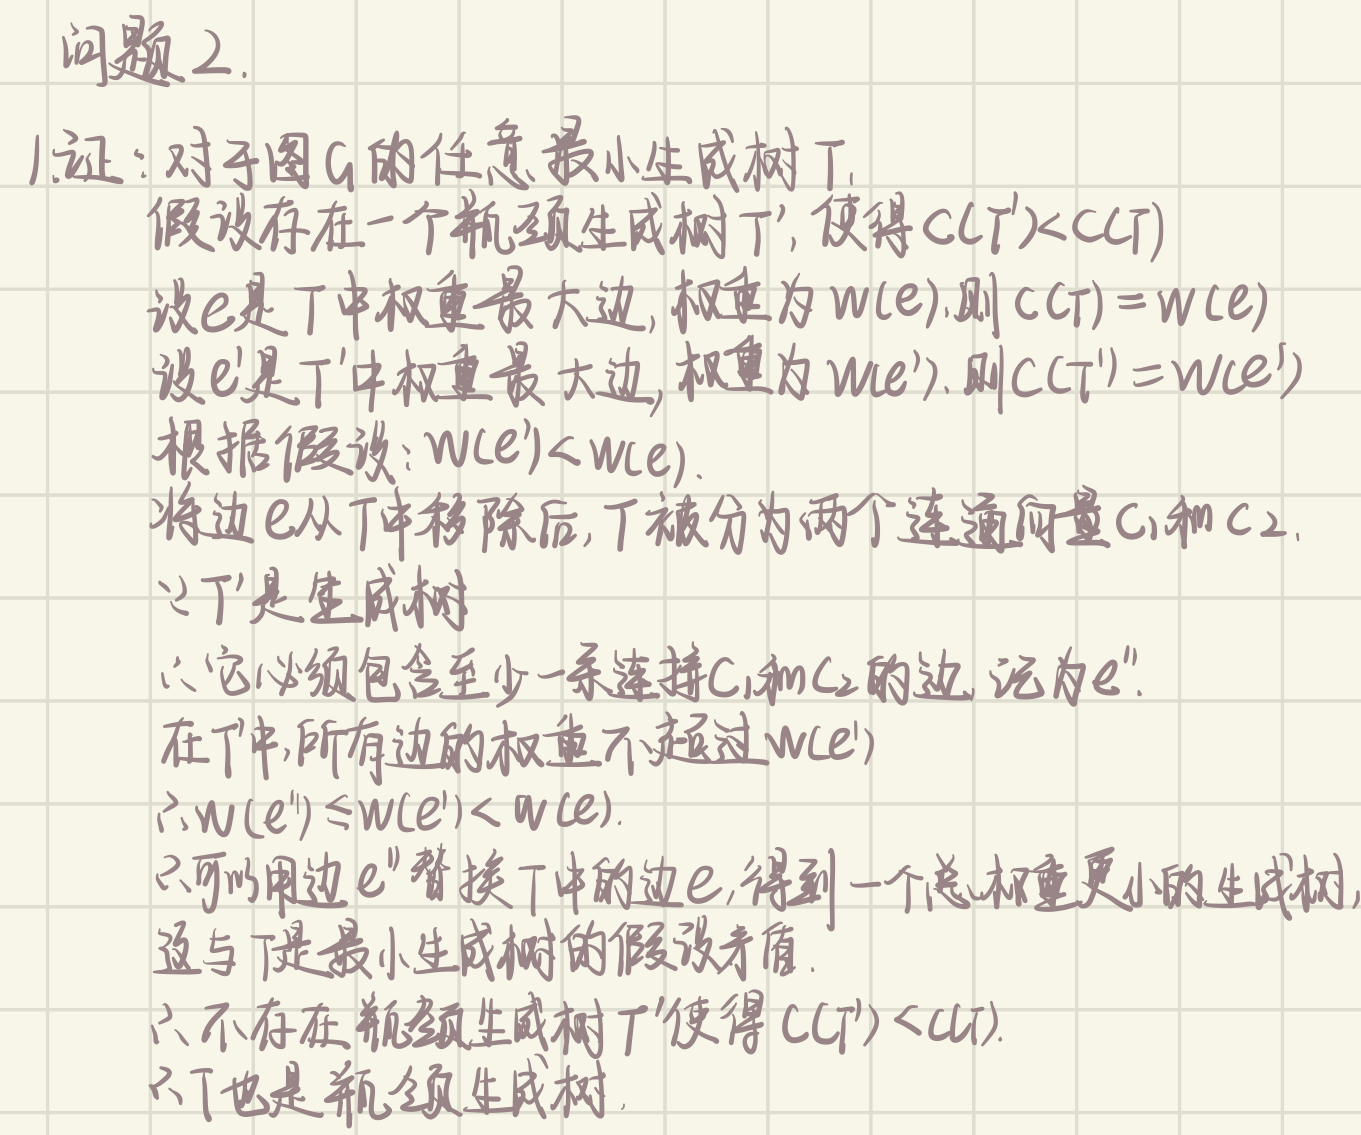 问题2.
1.证:对于图G的任意最小生成树T,
假设存在一个瓶颈生成树T',使得C(T')<C(T)
设e是T中权重最大边,权重为w(e).则C(T)=w(e)
设e'是T'中权重最大边,权重为w(e').则C(T')=w(e')
根据假设:w(e')<w(e).
将边e从T中移除后,T被分为两个连通问量C₁和C₂.
∵T'是生成树
∴它必须包含至少一条连接C₁和C₂的边,记为e''.
在T'中,所有边的权重不超过w(e')
∴w(e'')≤w(e')<w(e).
∴可以用边e''替换T中的边e,得到一个总权重更小的生成树,
这与T是最小生成树的假设矛盾.
∴不存在瓶颈生成树T'使得C(T')<C(T).
∴T也是瓶颈生成树.